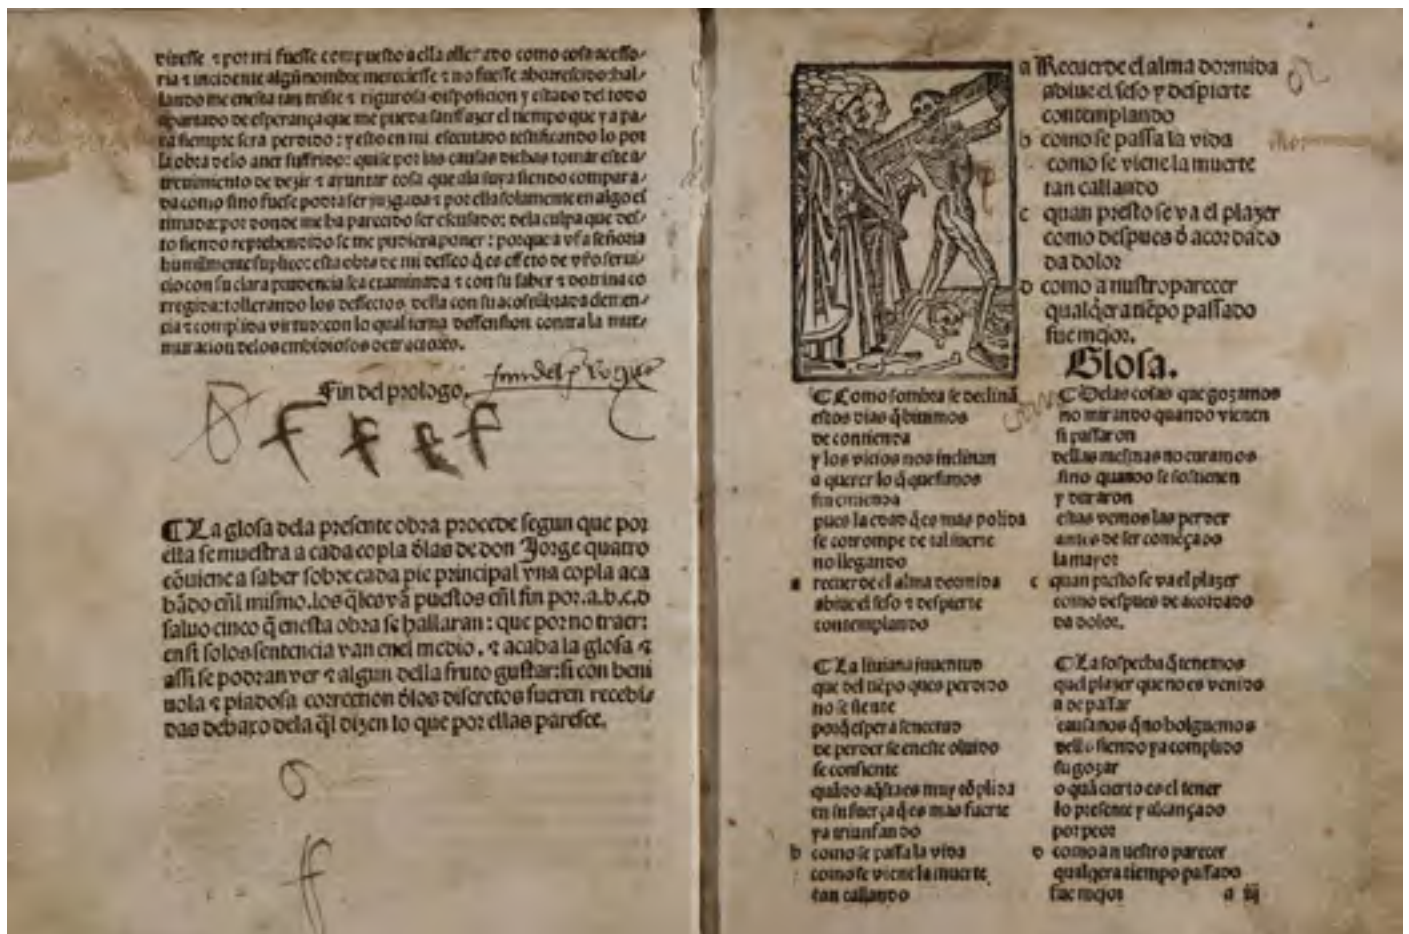 diresse ⁊ por mi fuesse compuesto a ella allegado como cosa acesso/
ria ⁊ incidente algũ nombre mereciesse ⁊ no fuesse aborrescido: hal/
lando me enesta tan triste ⁊ rigurosa disposicion y estado del todo
apartado de esperança que me pueda satisfazer el tiempo que ya pa/
ra siempre sera perdido: y esto en mi esecutado testificando lo por
la obra delo auer suffrido: quise por las causas dichas tomar este a/
treuimiento de dezir ⁊ ayuntar cosa que ala suya siendo compara/
da como sino fuese podra ser juzgada ⁊ por ella solamente en algo es
timada: por donde me ha parecido ser escusado: dela culpa que des/
to siendo reprehendido se me pudiera poner: porque a vr̃a señoria
humilmente suplico: esta obra de mi desseo q̃ es effeto de vr̃o serui/
cio con su clara prudencia sea examinada ⁊ con su saber ⁊ dotrina co
rregida: tollerando los deffectos della con su acostũbrada clemen/
cia ⁊ complida virtud: con lo qual terna deffension contra la mur/
muracion delos embidiosos detractores.
Fin del prologo.
f f f f
¶ La glosa dela presente obra procede segun que por
ella se muestra a cada copla d̃las de don Jorge quatro
cõuiene a saber sobre cada pie principal vna copla aca
bãdo cñl mismo. los q̃les vã puestos cñl fin por .a.b.c.d
saluo cinco q̃ enesta obra se hallaran: que por no traer:
en si solos sentencia van enel medio. ⁊ acaba la glosa ⁊
assi se podran ver ⁊ algun della fruto gustar: si con beni
uola ⁊ piadosa correction d̃los discretos fueren recebi/
das debaxo dela q̃l dizen lo que por ellas paresce.
a Recuerde el alma dormida
abiue el seso y despierte
contemplando
b como se passa la vida
como se viene la muerte
tan callando
c quan presto se va el plazer
como despues d̃ acordado
da dolor
d como a nuestro parecer
qualq̃era tiẽpo passado
fue mejor.
Glosa.
¶ Como sombra se declinã
estos dias q̃ biuimos
de contienda
y los vicios nos inclinan
a querer lo q̃ quesimos
sin emienda
pues la edad q̃ es mas polida
se corrompe de tal suerte
no llegando
a recuerde el alma dormida
abiue el seso ⁊ despierte
contemplando
¶ La liuiana juuentud
que del tiẽpo ques perdido
no se siente
porq̃ espera senectud
de perder se eneste oluido
se consiente
quãdo aq̃sta es muy cõplida
en su fuerça q̃ es mas fuerte
ya triunfando
b como se passa la vida
como se viene la muerte
tan callando
¶ Delas cosas que gozamos
no mirando quando vienen
si passaron
dellas mesmas no curamos
sino quando se sostienen
y duraron
estas vemos las perder
antes de ser começado
la mayor
c quan presto se va el plazer
como despues de acordado
da dolor.
¶ La sospecha q̃ tenemos
quel plazer que no es venido
a de passar
causanos q̃ no holguemos
dello siendo ya complido
su gozar
o quã cierto es el tener
lo presente y alcançado
por peor
d como a nuestro parecer
qualq̃era tiempo passado
fue mejor
a iij